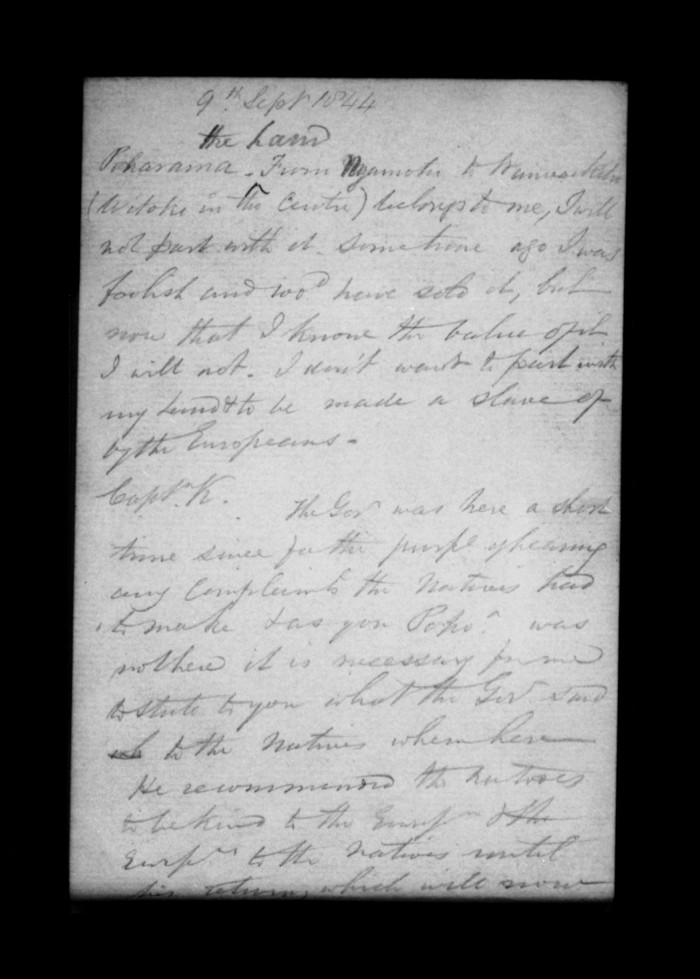 9th Sept 1844
the land
Poharama. From Ngamotu to
(Witoki in the Centre) belongs to me, I will
not part with it. Sometime ago I was
foolish and wod have sold it, but
now that I know the value of it
I will not. I don't want to part with
my land & to be made a slave of
by the Europeans -
Captn. K. The Govr was here a short
time since for the purpe of hearing
any Complaints the Natives had
to make & as you Poho. was
not here it is necessary for me
to state to you what the Govr said
to the Natives when here
He recommended the Natives
to be kind to the Europns & the
Europns to the Natives until
his return, which will now